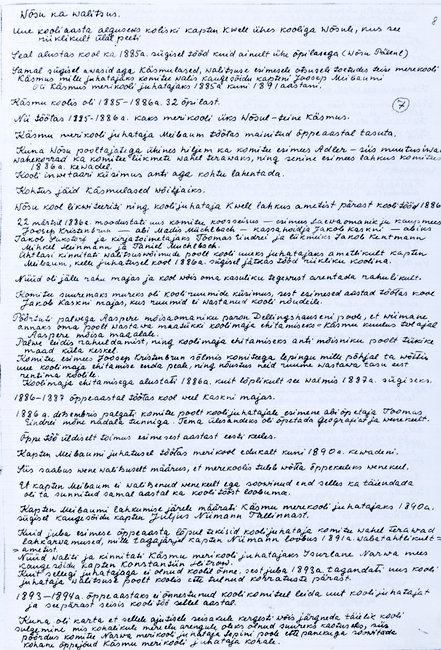 Wõsu ka walitsus.
8
Uue kooli aasta alguseks kolis ki kapten Kwell ühes kooliga Wõsule, kus see
riiklikult ülal peeti
Seal alustas kool ka 1885a. sügisel tööd kuid ainult ühe õpilasega (Wõsu
Samal sügisel awasid aga Käsmulased, walitsuse esimesele otsusele toetudes teise merekooli
Käsmus mille juhatajaks komitee walis kaugesõidu kapteni Joosep Meibaumi
oli Käsmus merikooli juhatajaks 1885a kuni 1891 aastani.
Käsmu koolis oli 1885-1886a. 32 õpilast.
7
Nii töötas 1885-1886a. kaks merikooli üks Wõsul - teine Käsmus.
Käsmu merikooli juhataja Meibaum töötas mainitud õppeaastal tasuta.
Kuna Wõsu pooltajatega ühines hiljem ka komitee esimes Adler - siis muutusiwa
wahekorrad ka komitee liikmete wahel terawaks, ning senine esimes lahkus komitees
1886a. kewadel.
Kooli inwetaari küsimus anti aga kohtu lahentada.
Kohtus jäid Käsmulased wõitjaiks.
Wõsu kool likwideeriti ning kooli juhataja Kwell lahkus ametist pärast kool tööd 1886
22 märtsil 1886a. moodustati uus komitee koosseisus - esimees Laewaomanik ja kaupmees
Joosep Kristenbrun - abi Madis Michelbach - kassahoidja Jakob Kaskni - abiks
Jakob ja kirjatoimetajaks Toomas Eindrei ja liikmeiks Jakob Kentmann
Mihkel Steinmann ja Tanil Michelbach.
Ühtlasi kinnitati walitsuswõimude poolt kooli uueks juhatajaks ametlikult kapten
Meibaum, kelle juhatusel kool 1886a. sügisel jätkas tööd riikliku koolina.
Nüüd oli jälle rahu majas ja kool wõis oma kasuliku tegewust arentada rahulikult.
Komitee suuremaks mureks oli kooli ruumide küsimus, sest esimesed aastad töötas kool
Jakob Kaskni majas, kus ruumid ei wastanud kooli nõudeile.
Pöörtuti palwega Aaspere mõisaomaniku paron Dellingshauseni poole, et wiimane
annaks oma poolt wastawa maatükki koolimaja ehitamiseks = Käsmu kuulus tol ajal
Aaspere mõisa maadele.
Palwe leidis rahuldamist, ning koolimaja ehitamiseks anti mõisniku poolt tükike
maad küla keskel.
Komitee esimes Joosep Kristenbrun sõlmis komiteega lepingu mille põhjal ta wõttis
uue koolimaja ehitamise enda peale, ning nõustus neid ruume wastawa tasu eest
rentima koolile.
Koolimaja ehitamisega alustati 1886a. kuid lõplikult see walmis 1887a. sügiseks.
1886-1887 õppeaastal töötas kool weel Kaskni majas.
1886a. detsembris palgati komitee poolt kooli juhatajale esimene abi õpetaja Toomas
Eindrei mõne nädala tunniga. Tema ülesandeks oli õpetada geograafiat ja wenekeelt.
Õppe töö üldiselt toimus esimesest aastast eesti keeles.
Kapten Meibaumi juhatusel töötas merikool edukalt kuni 1890a. kewadeni.
Siis saabus wene walitsuselt määrus, et merekoolis tuleb wõtta õppekeeleks wenekeel.
Et kapten Meibaum ei walitsenud wenekeelt ega soowinud end selles ka täiendada
oli ta sunnitud samal aastal ka kooli tööst loobuma.
Kapten Meibaumi lahkumise järele määrati Käsmu merekooli juhatajaks 1890a.
sügisel kaugesõidu kapten Juljus Niimann Tallinnast.
Kuid juba esimese õppeaasta lõpul tekisid kooli juhataja komitee wahel terawad
lahkarwamused, mille tagajärjel kapten Niimann loobus 1891a. wabatahtlikult =
= ametist.
Nüüd waliti ja kinnitati Käsmu merikooli juhatajaks Isurlane Narwa mees
kaugesõidu kapten Konstantiin Histrow.
Kuid sellegi juhatajaga ei olnud koolil õnne, sest juba 1893a. tagandati uus kooli
juhataja walitsuse poolt koolis ette tulnud korratuste pärast.
1893-1894a. õppeaastaks ei õnnestunud kooli komiteel leida uut kooli juhatajat
ja sepärast seisis kooli töö sellel aastal.
Kuna oli karta et sellele ajutisele seisakule kergesti wõis järgneda täielik kooli
sulgemine mis kohalikule mereäru arengule oleks olnud suureks kaotuseks, siis
pöördus komitee Narwa merikooli juhataja Lepini poole ettepanekuga sõmitada
kohane õppejõud Käsmu merikooli juhataja kohale.